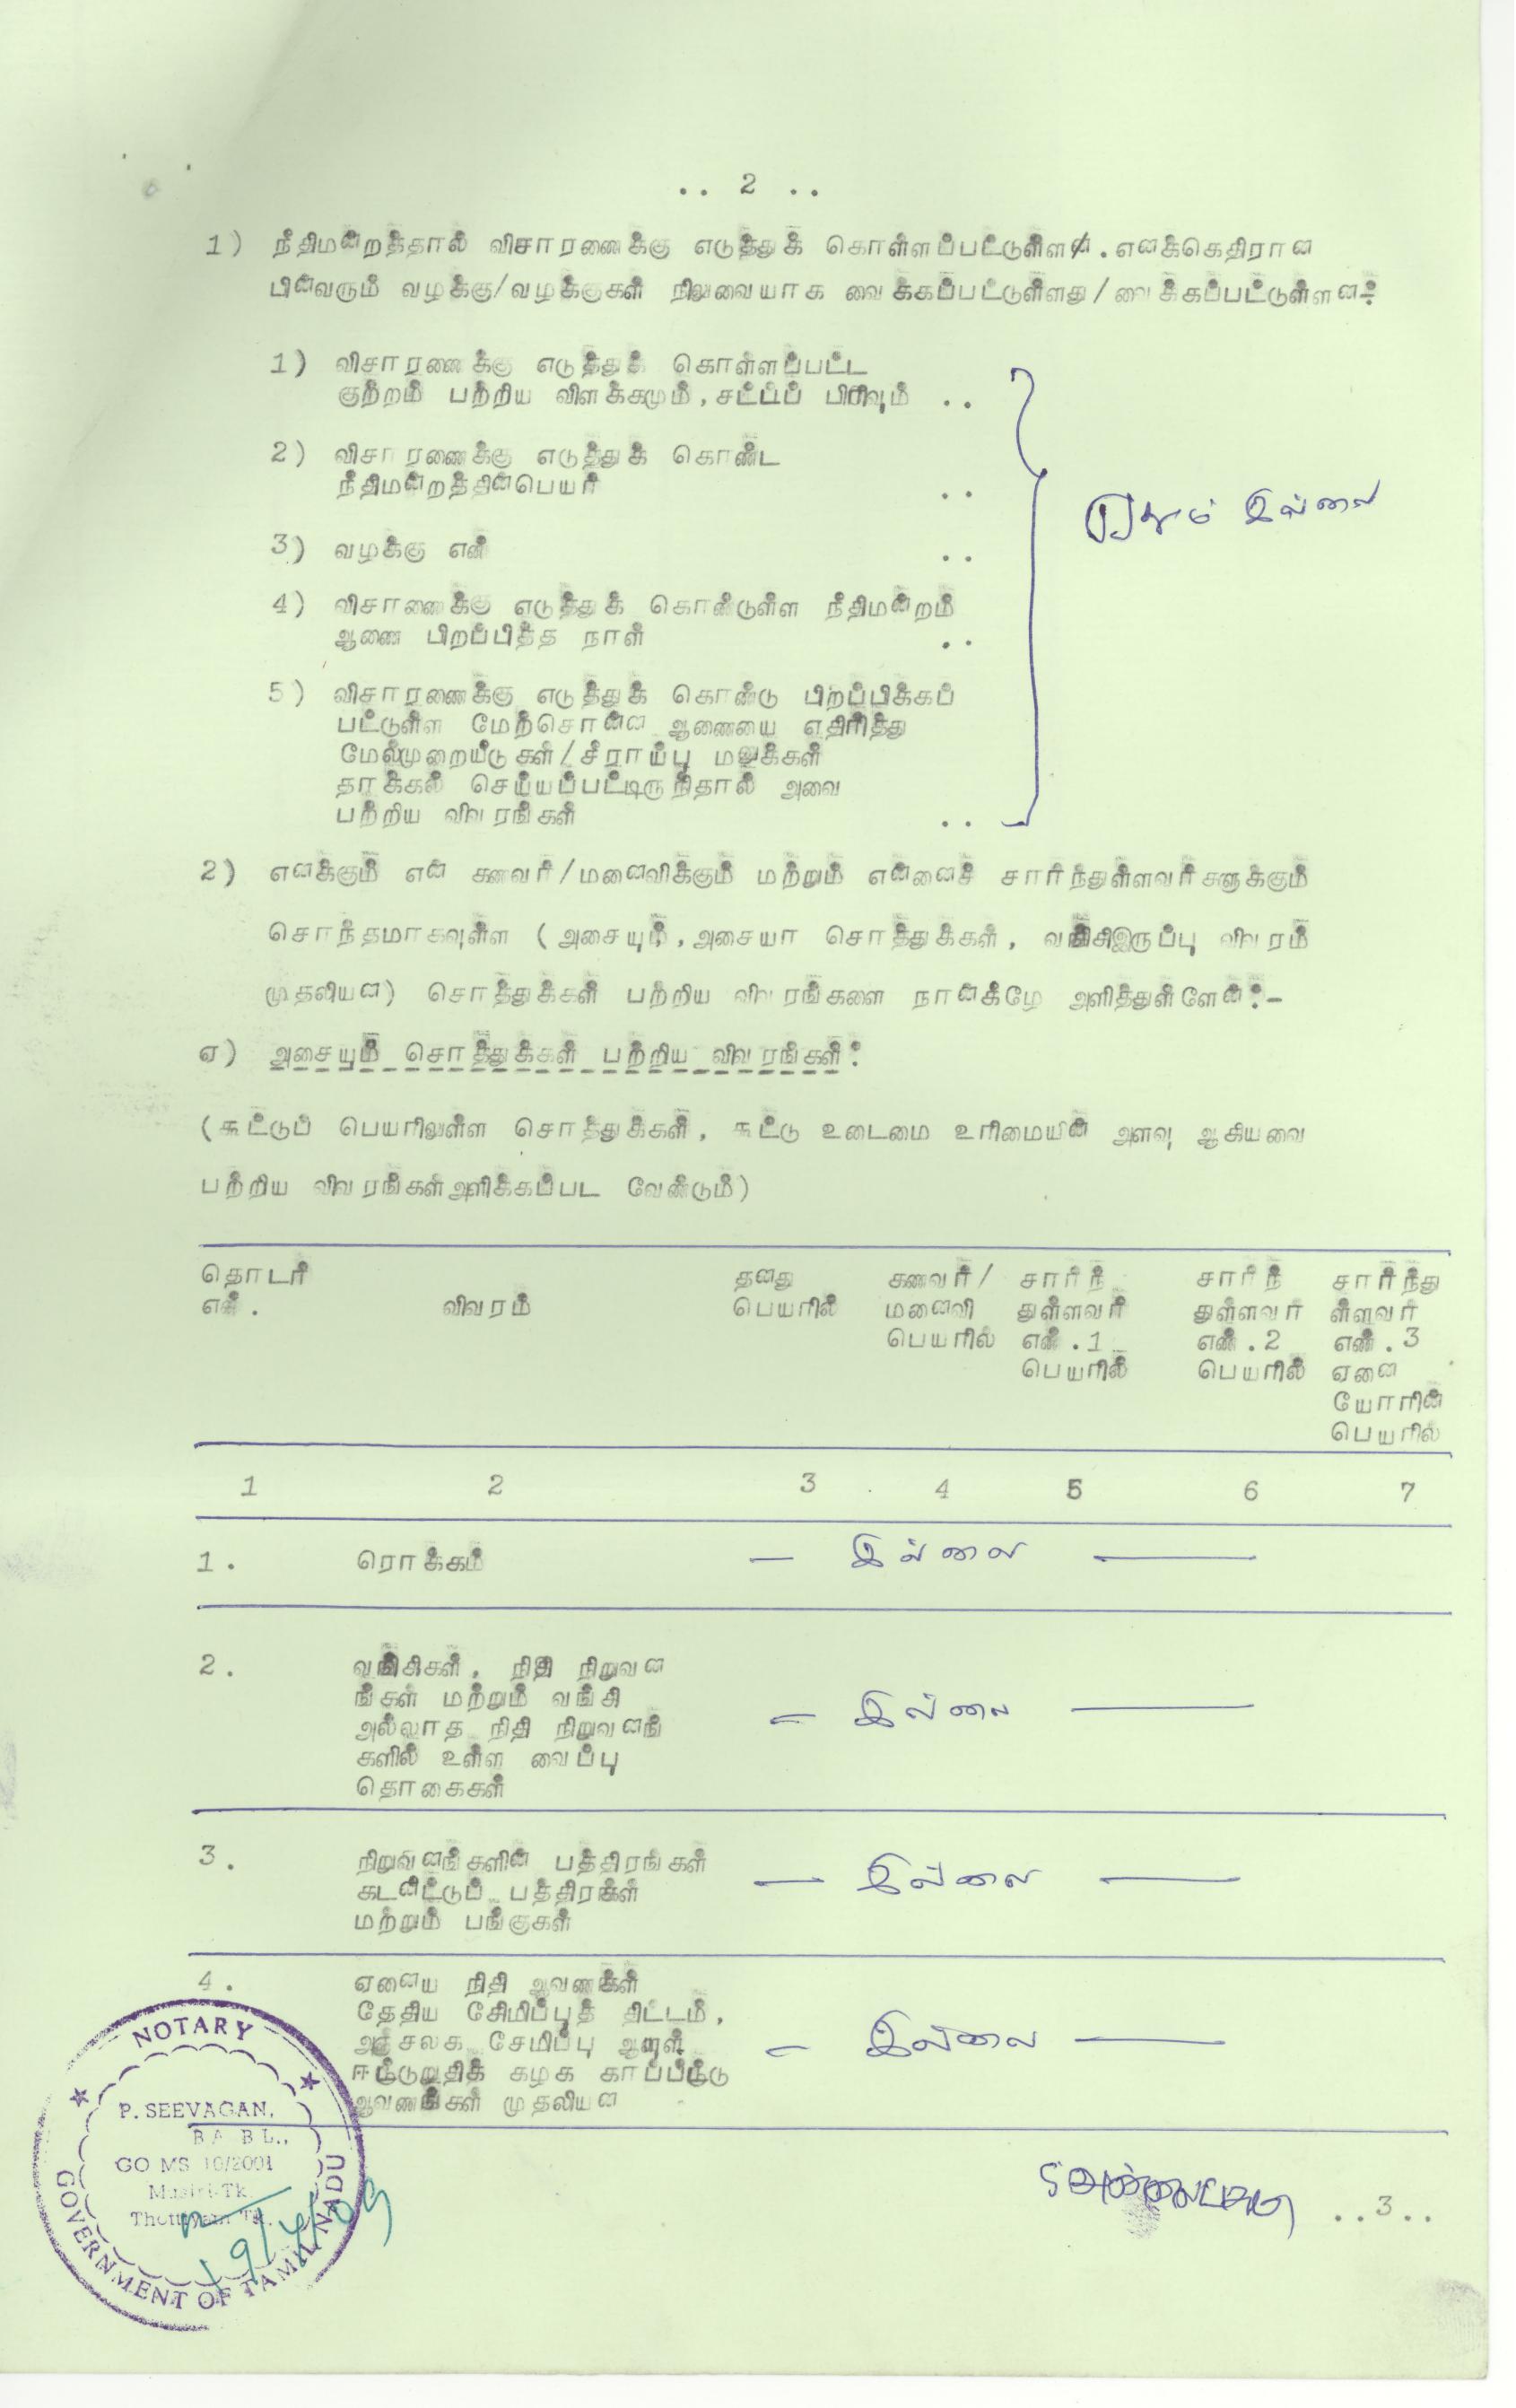 .. 2 ..
1) நீதிமன்றத்தால் விசாரணைக்கு எடுத்துக் கொள்ளப்பட்டுள்ளன. எனக்கெதிரான
பின்வரும் வழக்கு/வழக்குகள் நிலுவையாக வைக்கப்பட்டுள்ளது/வைக்கப்பட்டுள்ளன:-
1) விசாரணைக்கு எடுத்துக் கொள்ளப்பட்ட
குற்றம் பற்றிய விளக்கமும், சட்டப் பிரிவும் ..
2) விசாரணைக்கு எடுத்துக் கொண்ட
நீதிமன்றத்தின்பெயர் ..
ஏதும் இல்லை
3) வழக்கு எண் ..
4) விசாணைக்கு எடுத்துக் கொண்டுள்ள நீதிமன்றம்
ஆணை பிறப்பித்த நாள் ..
5) விசாரணைக்கு எடுத்துக் கொண்டு பிறப்பிக்கப்
பட்டுள்ள மேற்சொன்ன ஆணையை எதிர்த்து
மேல்முறையீடுகள்/சீராய்பு மனுக்கள்
தாக்கல் செய்யப்பட்டிருந்தால் அவை
பற்றிய விவரங்கள் ..
2) எனக்கும் என் கணவர்/மனைவிக்கும் மற்றும் என்னைச் சார்ந்துள்ளவர்களுக்கும்
சொந்தமாகவுள்ள (அசையும், அசையா சொத்துக்கள், வங்கிஇருப்பு விவரம்
முதலியன) சொத்துக்கள் பற்றிய விவரங்களை நான்கீழே அளித்துள்ளேன்:-
ஏ) அசையும் சொத்துக்கள் பற்றிய விவரங்கள்:
(கூட்டுப் பெயரிலுள்ள சொத்துக்கள், கூட்டு உடைமை உரிமையின் அளவு ஆகியவை
பற்றிய விவரங்கள்அளிக்கப்பட வேண்டும்)
தொடர் தனது கணவர்/ சார்ந் சார்ந் சார்ந்து
எண். விவரம் பெயரில் மனைவி துள்ளவர் துள்ளவர் ள்ளவர்
பெயரில் எண்.1 எண்.2 எண்.3
பெயரில் பெயரில் ஏனை
யோரின்
பெயரில்
1 2 3 4 5 6 7
1. ரொக்கம் — இல்லை —
2. வங்கிகள், நிதி நிறுவன
ங்கள் மற்றும் வங்கி
அல்லாத நிதி நிறுவனங் — இல்லை —
களில் உள்ள வைப்பு
தொகைகள்
3. நிறுவனங்களின் பத்திரங்கள்
கடனீட்டுப் பத்திரங்கள் — இல்லை —
மற்றும் பங்குகள்
4. ஏனைய நிதி ஆவணங்கள்
தேதிய சேமிப்புத் திட்டம்,
அஞ்சலக சேமிப்பு ஆயுள் — இல்லை —
ஈட்டுறுதிக் கழக காப்பீட்டு
ஆவணங்கள் முதலியன
NOTARY
P. SEEVAGAN,
B A B L.,
GO MS 10/2001
Musiri-Tk
Thottiyam Tk.
GOVERNMENT OF TAMIL NADU
19/4/09
..3..